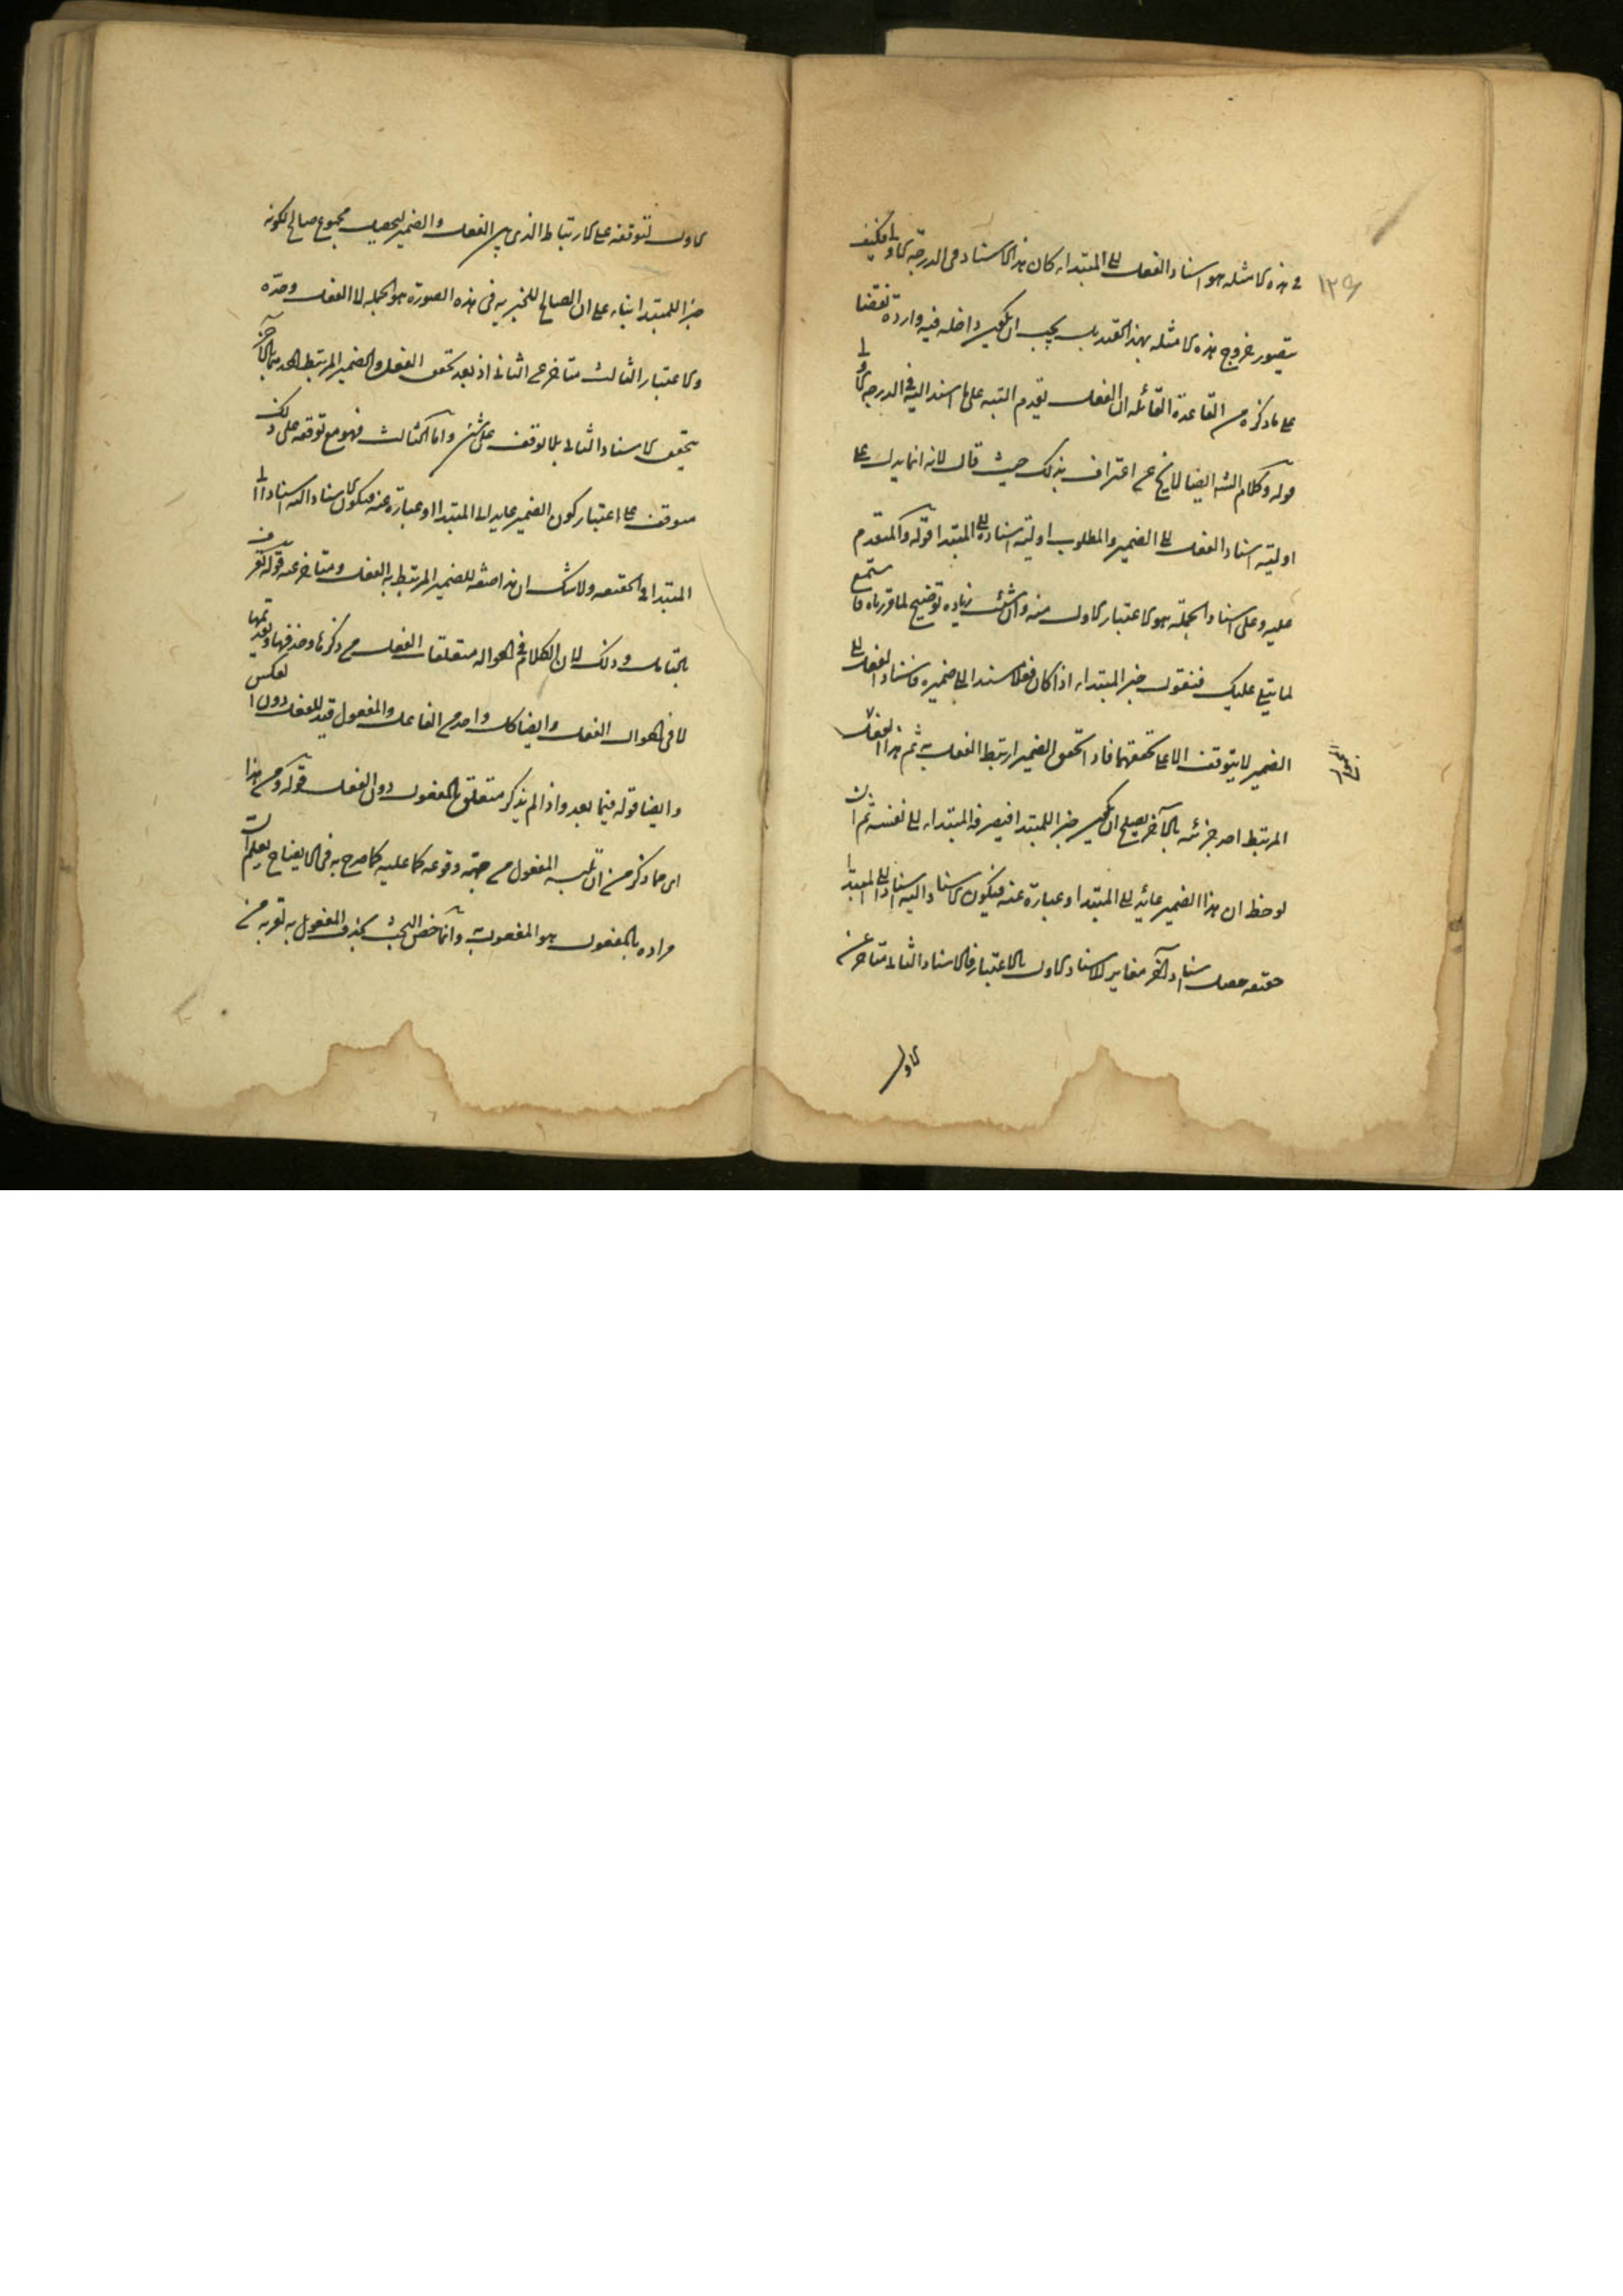 ١٣٩
في هذه الامثلة هو اسناد الفعل الى المبتداء كان هذا الاسناد في الدرجة الاولى فكيف
يتصور خروج هذه الامثلة بهذا القيد بل يجب ان يكون داخلة فيه واردة نقضا
على ما ذكره من القاعدة القائلة ان الفعل يقدم البتة على ما اسند اليه في الدرجة الاولى
قوله وكلام الشه ايضا لا يخ عن اعتراف بذلك حيث قال لانه انما يدل على
اولية اسناد الفعل الى الضمير والمطلوب اولية اسناده الى المبتدا قوله والمتقدم
عليه وعلى اسناد الجملة هو الاعتبار الاول منه وان شئت زيادة توضيح لما قررناه فاستمع
لما يتلى عليك فنقول خبر المبتداء اذا كان فعلا مسندا الى ضميره فاسناد الفعل الى
الضمير لا يتوقف الا على تحققهما فاذا تحقق الضمير ارتبط الفعل به ثم هذا الفعل
المرتبط احد جزئيه بالآخر يصلح ان يكون خبرا للمبتدا فيصرفه المبتداء الى نفسه ثم ان
لوحظ ان هذا الضمير عائد الى المبتدا وعبارة عنه فيكون الاسناد اليه اسنادا الى المبتدا
حقيقة حصل اسناد آخر مغاير للاسناد الاول بالاعتبار فالاسناد الثاني متاخر عن
الاول
الاول لتوقفه على الارتباط الذي بين الفعل والضمير ليحصل مجموع صالح لكونه
خبرا للمبتدا بناء على ان الصالح للخبرية في هذه الصورة هو الجملة لا الفعل وحده
والاعتبار الثالث متاخر عن الثاني اذ بعد تحقق الفعل والضمير المرتبط احدهما بالآخر
يتحقق الاسناد الثاني بلا توقف على شئ واما الثالث فهو مع توقفه على ذلك
موقوف على اعتبار كون الضمير عايدا الى المبتدا او عبارة عنه فيكون الاسناد اليه اسنادا الى
المبتدا في الحقيقة ولا شك ان هذا صفة للضمير المرتبط به الفعل ومتاخر عنه قوله
بالتامل وذلك لان الكلام في احوال متعلقات الفعل من ذكرها وحذفها وتقديمها
لا في احوال الفعل وايضا كل واحد من الفاعل والمفعول قيد للفعل دون العكس
وايضا قوله فيما بعد واذا لم يذكر متعلق بالمفعول دون الفعل قوله ومن هذا
اى مما ذكر من ان تلبسه المفعول من جهة وقوعه عليه كما صرح به في الايضاح يعلم ان
مراده بالمفعول هو المفعول به وانما خص البحث بحذف المفعول به لقربه من